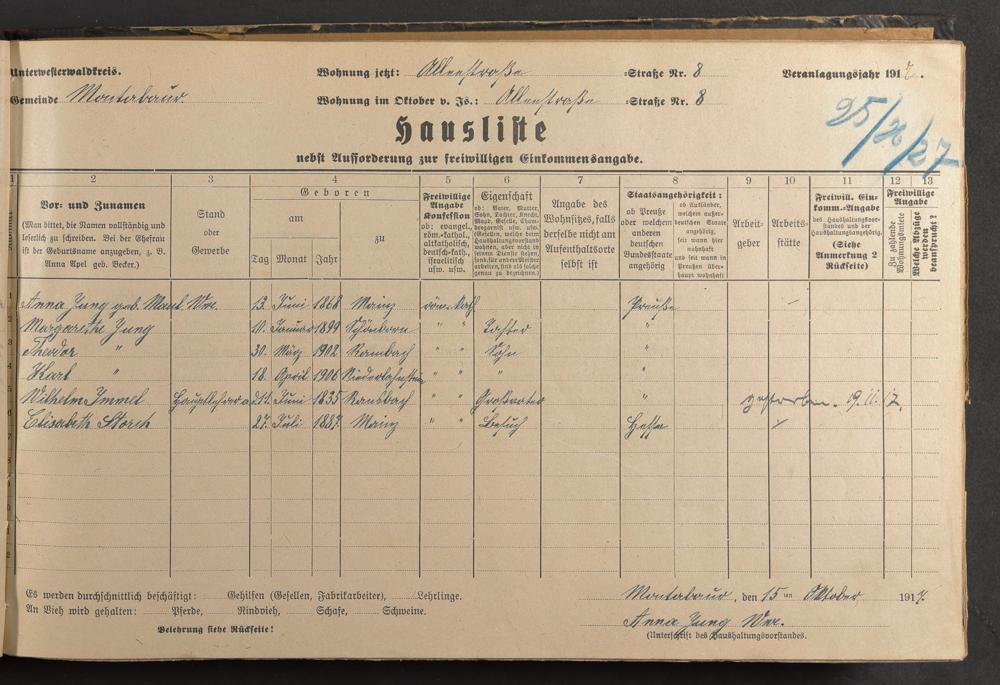 Unterwesterwaldkreis. Wohnung jetzt: Alleestraße =Straße Nr. 8 Veranlagungsjahr 1917.
Gemeinde Montabaur. Wohnung im Oktober v. Js.: Alleestraße =Straße Nr. 8
25/26/27
Hausliste
nebst Aufforderung zur freiwilligen Einkommensangabe.
1 2 3 4 5 6 7 8 9 10 11 12 13
Vor- und Zunamen
(Man bittet, die Namen vollständig und
leserlich zu schreiben. Bei der Ehefrau
ist der Geburtsname anzugeben, z. B.
Anna Apel geb. Becker.)
Stand
oder
Gewerbe
Geboren
am zu
Tag Monat Jahr
Freiwillige
Angabe
Konfession
ob: evangel.,
röm.-kathol.,
altkatholisch,
deutsch-kath.,
israelitisch
usw. usw.
Eigenschaft
ob: Vater, Mutter,
Sohn, Tochter, Knecht,
Magd, Geselle, Cham-
bregarnist usw. usw.
Angabe des
Wohnsitzes, falls
derselbe nicht am
Aufenthaltsorte
selbst ist
Staatsangehörigkeit:
ob Preuße
oder welchem
anderen
deutschen
Bundesstaate
angehörig
ob Ausländer,
welchem außer-
deutschen Staate
angehörig,
seit wann hier
wohnhaft
und seit wann in
Preußen über-
haupt wohnhaft
Arbeit-
geber
Arbeits-
stätte
Freiwill. Ein-
komm.-Angabe
des Haushaltungsvor-
standes und der
Haushaltungsangehörig.
(Siehe
Anmerkung 2
Rückseite)
Freiwillige
Angabe
Zu zahlende
Wohnungsmiete
Welche Abzüge
werden
beansprucht?
Anna Jung geb. Wwe. 13. Juni 1868 Mainz röm. kath. Preuße
Margarethe Jung 10. Januar 1899 Schönborn " " Tochter "
Theodor " 30. März 1902 Rambach " " Sohn "
Karl " 18. April 1906 Niederlahnstein " " " "
Wilhelm Immel Hauptlehrer a.D. 11. Juni 1835 Ransbach " " Großvater " gestorben. 19.11.17.
Elisabeth Storch 27. Juli 1887 Mainz " " Besuch Hesse
Es werden durchschnittlich beschäftigt: Gehilfen (Gesellen, Fabrikarbeiter), Lehrlinge.
An Vieh wird gehalten: Pferde, Rindvieh, Schafe, Schweine.
Belehrung siehe Rückseite!
Montabaur, den 15ten Oktober 1917.
Anna Jung Wwe.
(Unterschrift des Haushaltungsvorstandes.